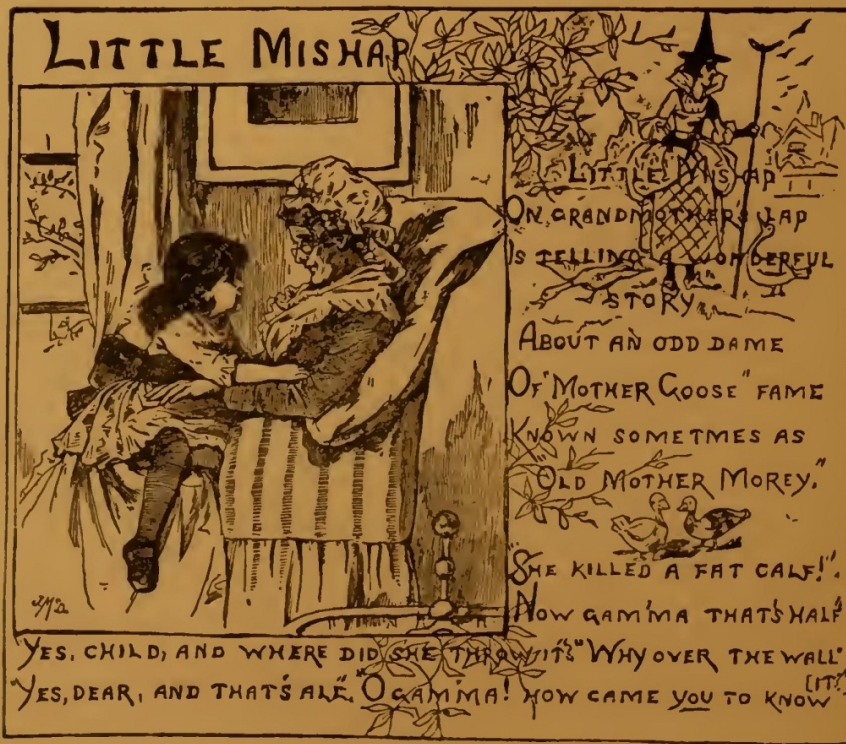 LITTLE MISHAP
LITTLE MISHAP
ON GRANDMOTHERS LAP
IS TELLING A WONDERFUL
STORY
ABOUT AN ODD DAME
OF "MOTHER GOOSE" FAME
KNOWN SOMETMES AS
"OLD MOTHER MOREY."
"SHE KILLED A FAT CALF!".
"NOW GAM'MA THAT'S HALF"
"YES, CHILD, AND WHERE DID SHE THROW IT?" "WHY OVER THE WALL"
"YES, DEAR, AND THAT'S ALL". "O GAM'MA! HOW CAME YOU TO KNOW
[IT?"